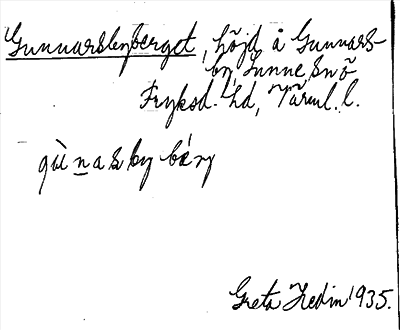 Gunnarsbyberget, höjd å Gunnars-
by, Sunne, sn ö
Fryksd. hd, Värml. l.
gù n a s by bær̨y
Greta Hedin 1935.